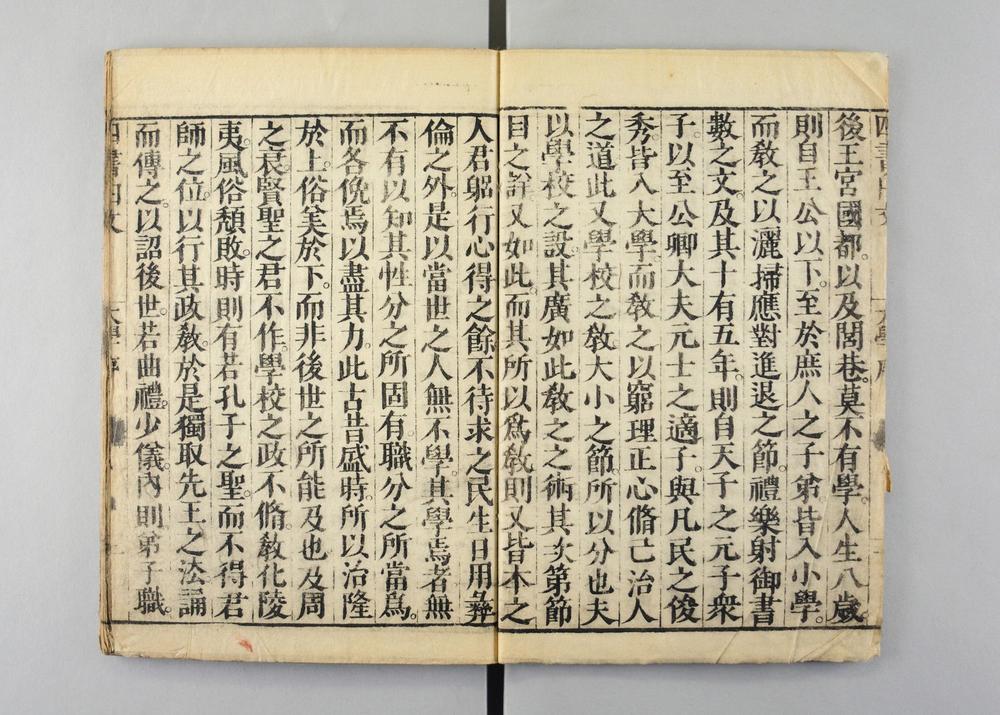 四書白文 大學序
後王宮國都。以及閭巷。莫不有學。人生八歲
則自王公以下。至於庶人之子弟皆入小學。
而敎之以灑掃應對進退之節。禮樂射御書
數之文及其十有五年。則自天子之元子衆
子。以至公卿大夫元士之適子。與凡民之俊
秀皆入大學。而敎之以窮理正心脩己治人
之道此又學校之敎大小之節。所以分也夫
以學校之設。其廣如此敎之之術其次第節
目之詳又如此。而其所以爲敎則又皆本之
人君躳行心得之餘不待求之民生日用彝
倫之外。是以當世之人無不學。其學焉者無
不有以知其性分之所固有。職分之所當爲。
而各俛焉以盡其力。此古昔盛時所以治隆
於上。俗美於下。而非後世之所能及也及周
之衰。賢聖之君不作。學校之政不脩。敎化陵
夷。風俗頹敗。時則有若孔子之聖。而不得君
師之位。以行其政敎。於是獨取先王之法誦
而傳之。以詔後世。若曲禮。少儀。內則弟子職。
四書白文 大學序